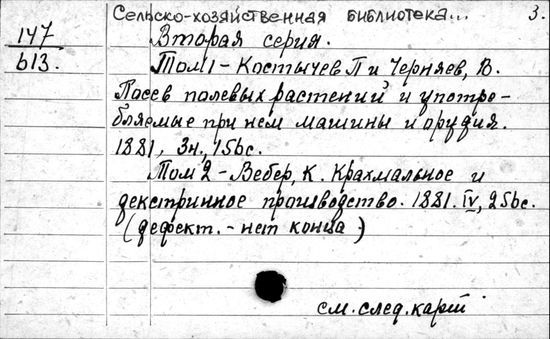 Сельско-хозяйственная библиотека... 3.
147 Вторая серия.
613. Том 1 - Костычев П и Черняев, В.
Посев полевых растений и употре-
бляемые при нем машины и орудия.
1881, 3н., 156с.
Том 2 - Вебер, К. Крахмальное и
декстринное производство. 1881. IV, 256с.
(дефект. - нет конца)
см. след. карт